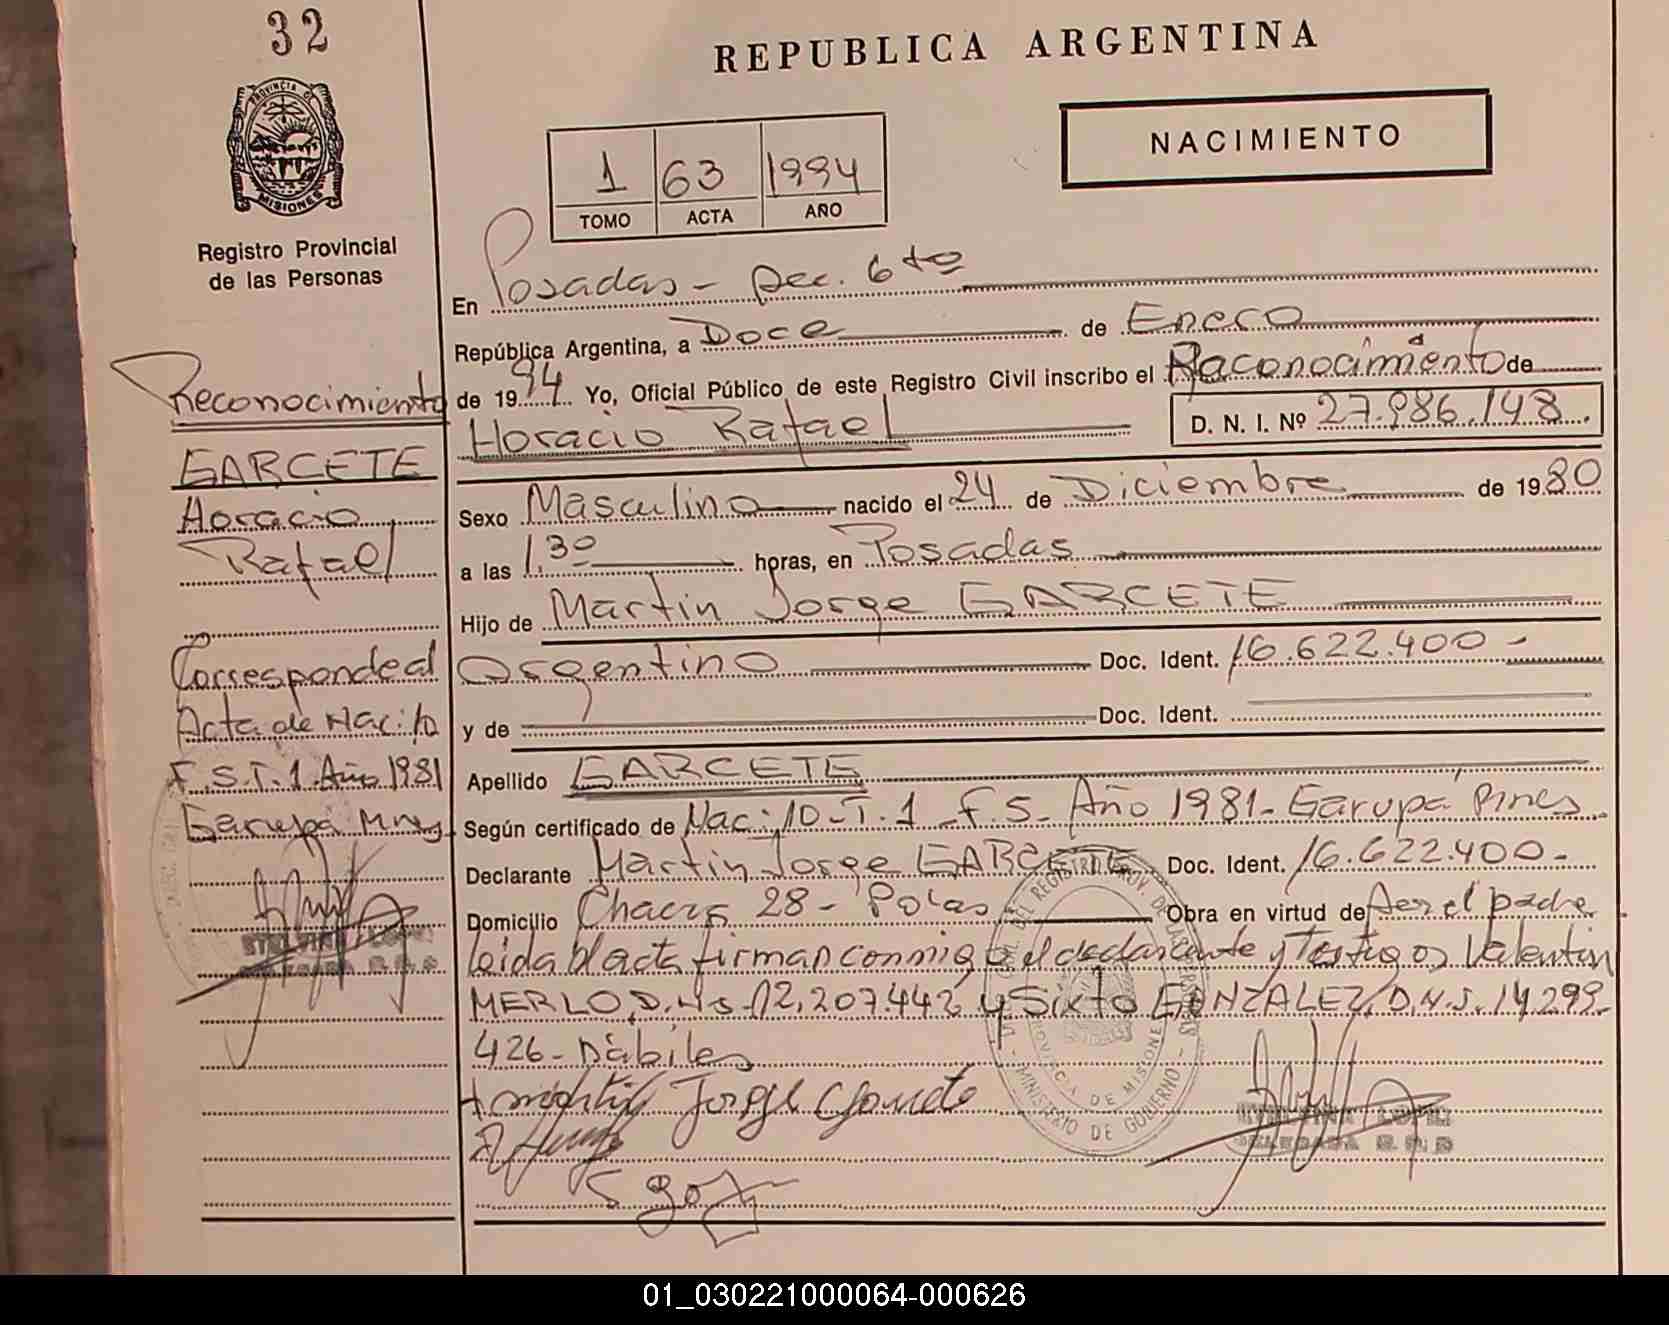 32
REPUBLICA ARGENTINA
PROVINCIA DE
MISIONES
NACIMIENTO
1 63 1994
TOMO ACTA AÑO
Registro Provincial
de las Personas
En Posadas - Sec. 6ta
República Argentina, a Doce de Enero
de 1994 Yo, Oficial Público de este Registro Civil inscribo el Reconocimiento de
Horacio Rafael D. N. I. Nº 27.986.148.
Sexo Masculino nacido el 24 de Diciembre de 1980
a las 1,30 horas, en Posadas
Hijo de Martin Jorge GARCETE
Argentino Doc. Ident. 16.622.400-
y de Doc. Ident.
Apellido GARCETE
Según certificado de Nac: 10-T.1 F.5- Año 1981- Garupá
Declarante Martin Jorge GARCETE Doc. Ident. 16.622.400-
Domicilio Chacra 28 - Pdas Obra en virtud de ser el padre
leida el acta firman conmigo el declarante y Testigos Valentin
MERLO, D. 12.207.442 y Sixto GONZALEZ, D.N.I. 14.299-
426- Dábiles
Jorge
Reconocimiento
GARCETE
Horacio
Rafael
Corresponde al
Acta de Nac: 10
F.5.T.1.Año 1981
Garupá Mnes
MINISTERIO DE GOBIERNO
PROVINCIA DE MISIONES
01_030221000064-000626